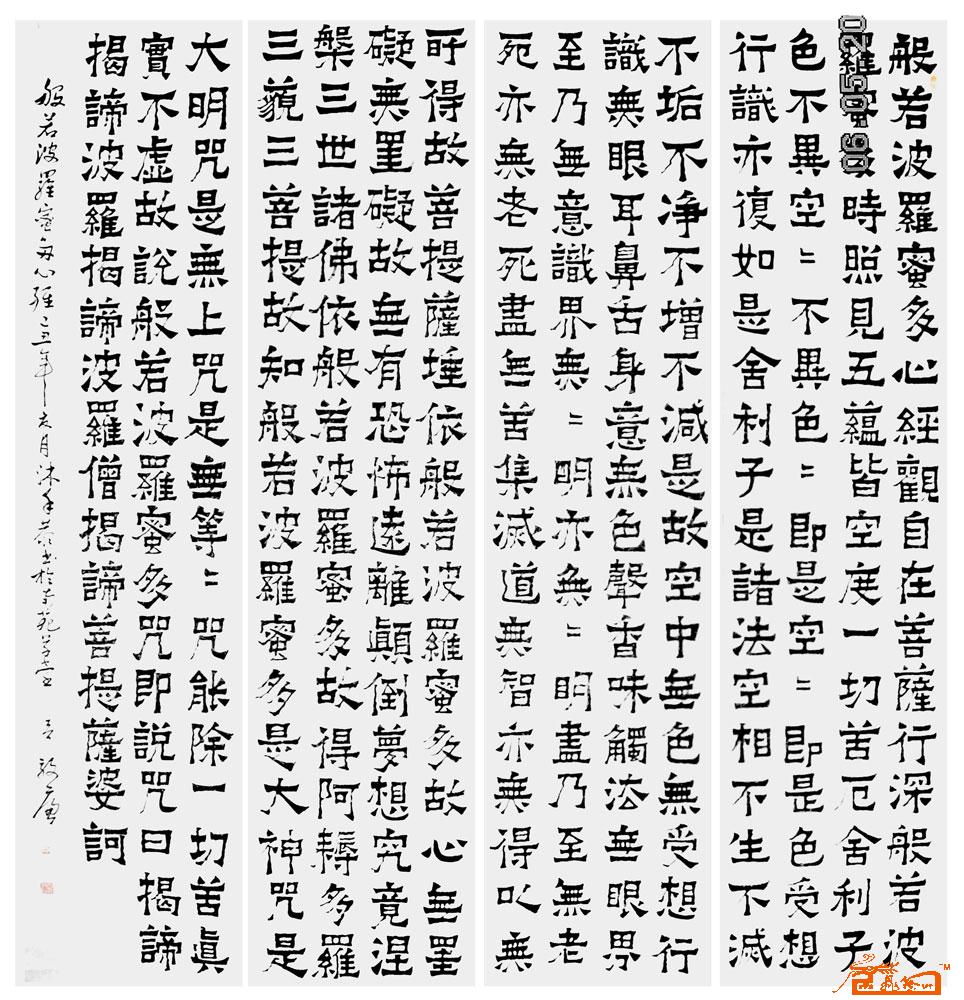 般若波羅蜜多心經觀自在菩薩行深般若波
羅蜜時照見五蘊皆空度一切苦厄舍利子
色不異空〻不異色〻即是空〻即是色受想
行識亦復如是舍利子是諸法空相不生不滅
不垢不淨不增不減是故空中無色無受想行
識無眼耳鼻舌身意無色聲香味觸法無眼界
至乃無意識界無〻明亦無〻明盡乃至無老
死亦無老死盡無苦集滅道無智亦無得以無
所得故菩提薩埵依般若波羅蜜多故心無罣
礙無罣礙故無有恐怖遠離顛倒夢想究竟涅
槃三世諸佛依般若波羅蜜多故得阿耨多羅
三藐三菩提故知般若波羅蜜多是大神咒是
大明咒是無上咒是無等〻咒能除一切苦真
實不虛故說般若波羅蜜多咒即說咒曰揭諦
揭諦波羅揭諦波羅僧揭諦菩提薩婆訶
般若波羅蜜多心經己丑年月沐手恭書於
06 05 20